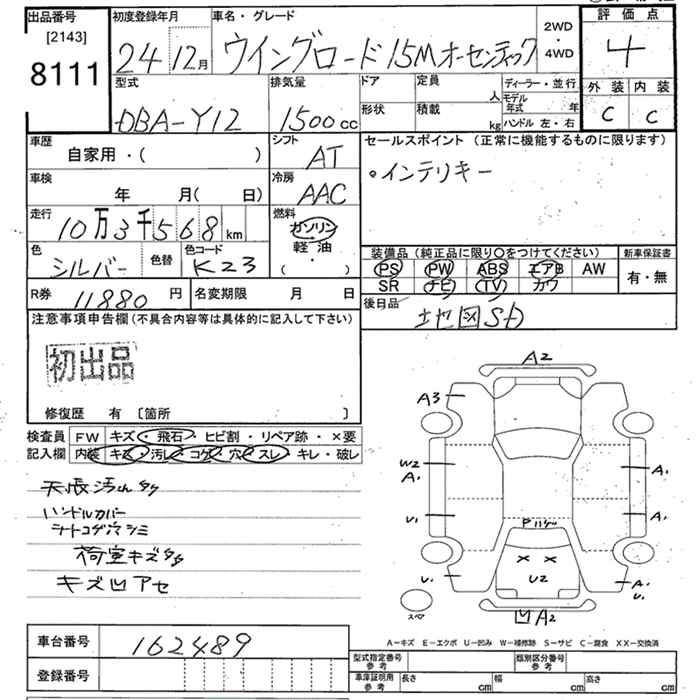 出品番号
[2143]
8111
初度登録年月
24 12月
車名・グレード
ウイングロード 15Mオーセンティック
2WD
・
4WD
評価点
4
外装 内装
C C
型式
DBA-Y12
排気量
1500cc
ドア
定員
人
形状
積載
kg
ディーラー・並行
モデル年式 年
ハンドル 左・右
車歴
自家用・( )
シフト
AT
セールスポイント (正常に機能するものに限ります)
・インテリキー
車検
年 月( 日)
冷房
AAC
走行
10万3千568km
燃料
ガソリン
軽・油
( ・ )
色
シルバー
色替
色コード
K23
装備品 (純正品に限り〇をつけてください)
PS PW ABS エアB AW
SR ナビ TV カワ
新車保証書
有・無
R券 11880円
名変期限 月 日
後日品
地図SD
注意事項申告欄(不具合内容等は具体的に記入して下さい)
初出品
修復歴 有 〔箇所 〕
検査員記入欄
FW キズ・飛石・ヒビ割・リペア跡・×要
内装 キズ・汚レ・コゲ・穴・スレ・キレ・破レ
ハンドルカバー
荷室キズ
キズ凹アセ
A2
A3
W2
A1
U1
U1
A1
A1
A1
U1
Pハゲ
× ×
U2
凹A2
スペア
A-キズ E-エクボ U-凹み W-補修跡 S-サビ C-腐食 XX-交換済
車台番号
162489
登録番号
型式指定番号
参考
類別区分番号
参考
車庫証明用
参考
長さ cm
幅 cm
高さ cm